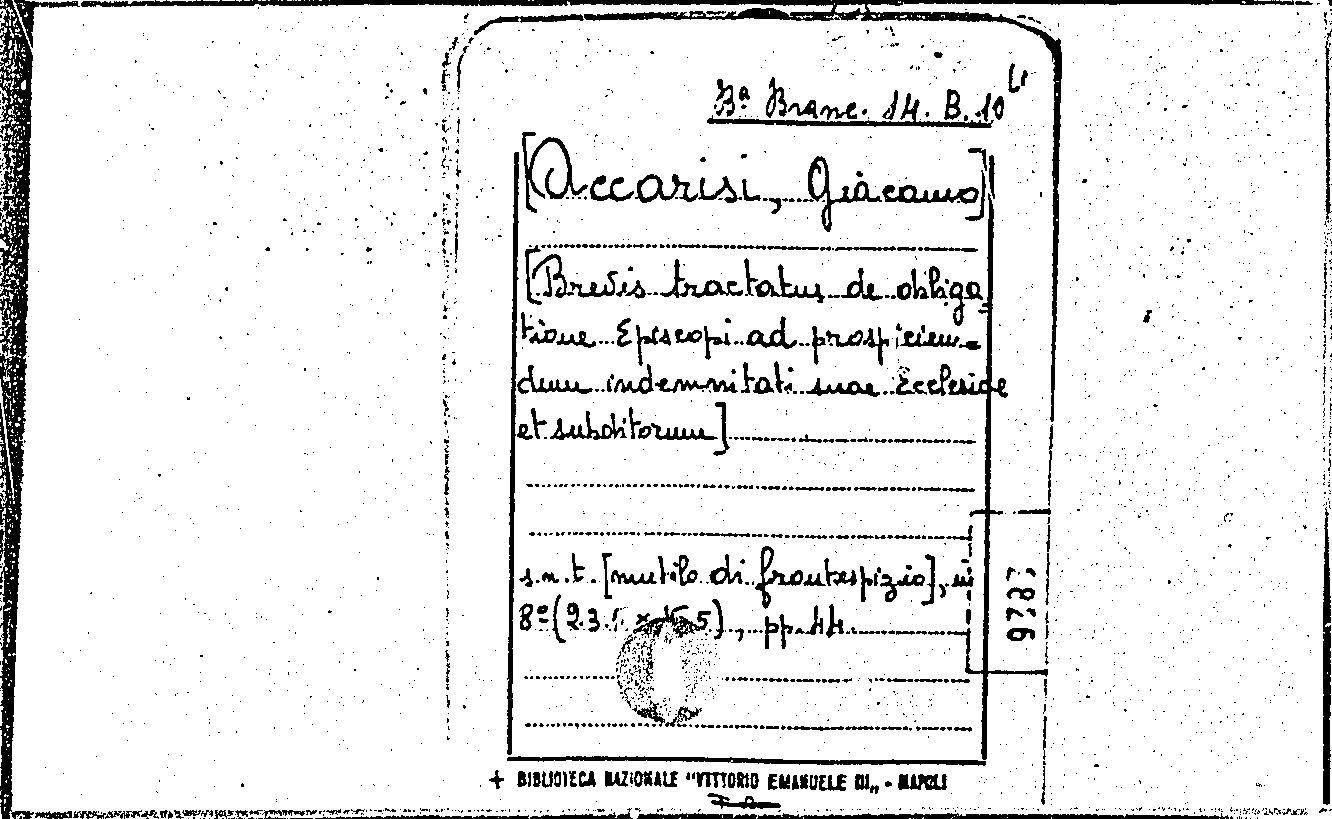 Bª Branc. 14. B. 10
[Accarisi, Giacomo]
[Brevis tractatus de obliga
tione Episcopi ad prospicien=
dum indemnitati suae Ecclesiae
et subditorum]
s.n.t. [mutilo di frontespizio], in
8º (23. x 5), pp. 44.
+ BIBLIOTECA NAZIONALE "VITTORIO EMANUELE III„ - NAPOLI